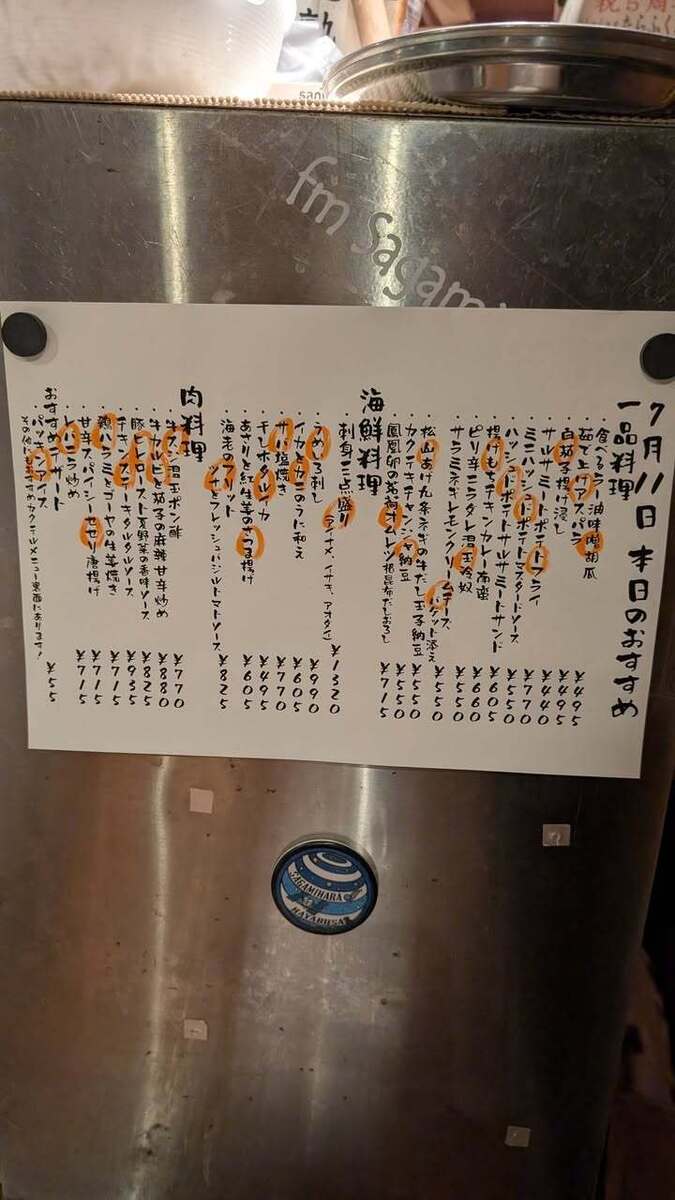 fm Sagami
7月11日 本日のおすすめ
一品料理
・食べるラー油味噌胡瓜 ¥495
・茹で上げアスパラ ¥495
・白茄子揚げ浸し ¥440
・サルサミートポテトフライ ¥770
・ミニハッシュドポテトマスタードソース ¥550
・ハッシュドポテトサルサミートサンド ¥605
・揚げもちチキンカレー南蛮 ¥660
・ピリ辛ニラダレ温玉冷奴 ¥550
・サラミネギレモンクリームチーズ、バケット添え ¥550
・松山あげ九条ネギの牛だし玉子納豆 ¥550
・カクテキチャンジャ納豆 ¥550
・鳳凰卵の オムレツ 根昆布だしおろし ¥715
海鮮料理
・刺身三点盛り (アイナメ、イサキ、アオダイ) ¥1320
・うめいろ刺し ¥990
・イカとカニのうに和え ¥605
・サバ塩焼き ¥770
・干しホタルイカ ¥495
・あさりと紅生姜のさつま揚げ ¥605
・海老のフリット ツナとフレッシュバジルトマトソース ¥825
肉料理
・牛タン温玉ポン酢 ¥770
・牛カルビと茄子の麻辣甘辛炒め ¥880
・豚ヒレロースト夏野菜の香味ソース ¥825
・チキンステーキタルタルソース ¥935
・鶏ハラミとゴーヤの生姜焼き ¥715
・甘辛スパイシーセセリ唐揚げ ¥715
・レバニラ炒め ¥715
おすすめデザート
・パッキンアイス ¥55
その他におすすめカクテルメニュー裏面にあります!
SAGAMIHARA
HAYABUSA2